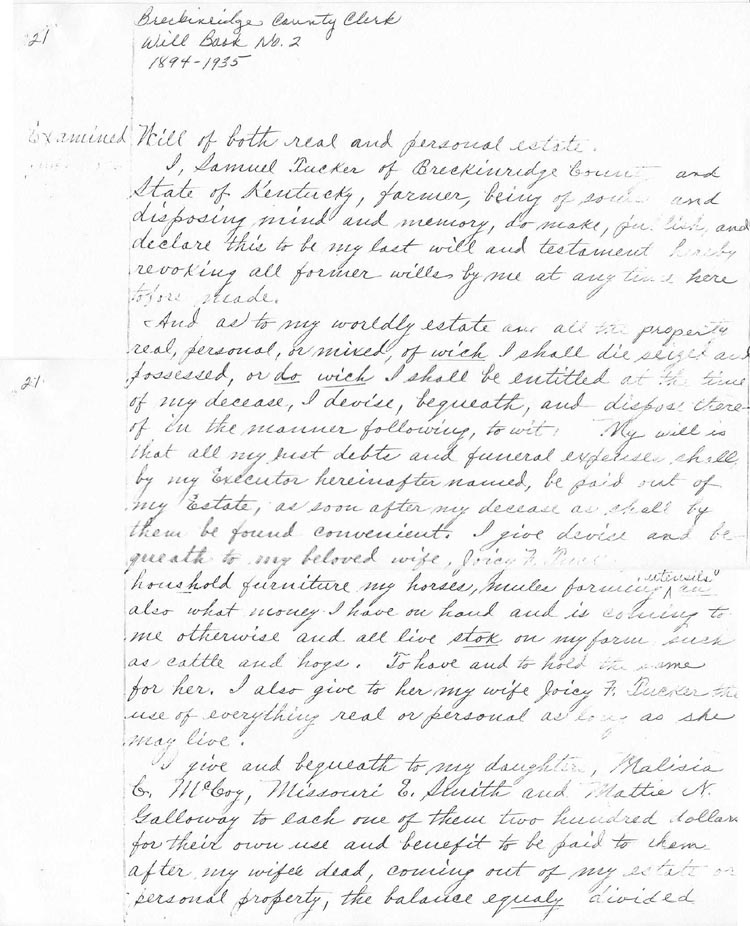 Breckinridge County Clerk
21
Will Book No. 2
1894-1935
Examined
Will of both real and personal estate.
I, Samuel Tucker of Breckinridge County and
State of Kentucky, farmer, being of sound and
disposing mind and memory, do make, publish, and
declare this to be my last will and testament hereby
revoking all former wills by me at any time here
tofore made.
And as to my worldly estate and all the property
real, personal, or mixed, of wich I shall die seized and
possessed, or do wich I shall be entitled at the time
21
of my decease, I devise, bequeath, and dispose there-
of in the manner following, to wit: My will is
that all my just debts and funeral expenses shall
by my Executor hereinafter named, be paid out of
my Estate, as soon after my decease as shall by
them be found convenient. I give devise and be-
queath to my beloved wife, Joicy F.
houshold furniture my horses, mules farming "utensils"
also what money I have on hand and is coming to
me otherwise and all live stok on my farm such
as cattle and hogs. To have and to hold the same
for her. I also give to her my wife Joicy F. Tucker the
use of everything real or personal as long as she
may live.
I give and bequeath to my daughters, Malisia
C. McCoy, Missouri E. Smith and Mattie N.
Galloway to each one of them two hundred dollars
for their own use and benefit to be paid to them
after my wifes dead, coming out of my estate or
personal property, the balance equaly divided